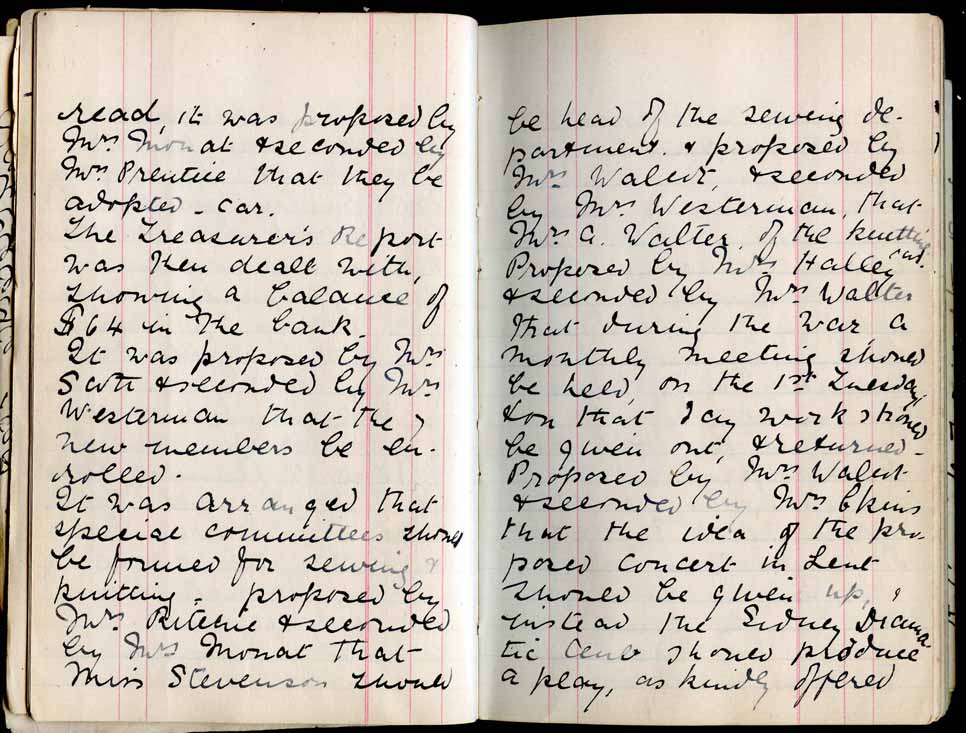 read, it was proposed by
Mrs Monat & seconded by
Mrs Prentice that they be
adopted - car.
The Treasurer's Report
was then dealt with,
showing a balance of
$64 in the bank.
It was proposed by Mrs
Scott & seconded by Mrs
Westerman that the 7
new members be en-
rolled.
It was arranged that
special committees should
be formed for sewing &
knitting - proposed by
Mrs Ritchie & seconded
by Mrs Monat that
Miss Stevenson should
be head of the sewing de-
partment. & proposed by
Mrs & seconded
by Mrs Westerman, that
Mrs A. Walter, of the knitting
card.
Proposed by Mrs Halley
& seconded by Mrs Walter
that during the war a
monthly meeting should
be held, on the 1st Tuesday,
& on that day work should
be given out, & returned -
Proposed by Mrs
& seconded by Mrs
that the idea of the pro-
posed concert in Lent
should be given up, &
instead the Sidney Drama
tic Club should produce
a play, as kindly offered